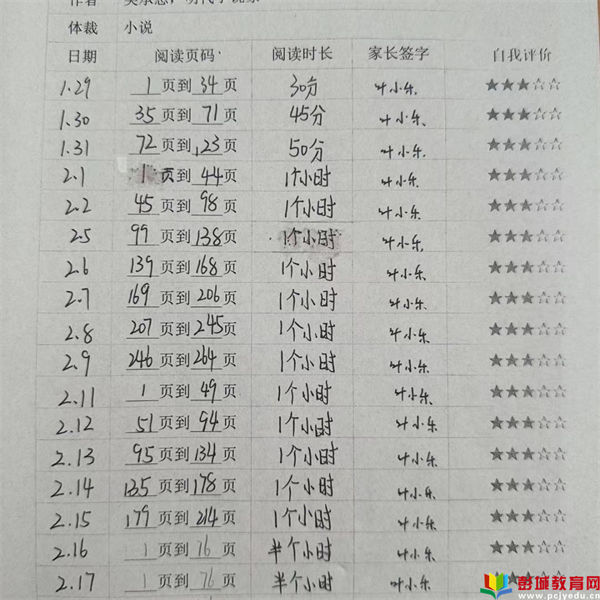 作者 吴承恩，明代小说家
体裁 小说
日期 阅读页码 阅读时长 家长签字 自我评价
1.29 1页到34页 30分 叶小乐 ★★★☆☆
1.30 35页到71页 45分 叶小乐 ★★★☆☆
1.31 72页到123页 50分 叶小乐 ★★★☆☆
2.1 1页到44页 1个小时 叶小乐 ★★★☆☆
2.2 45页到98页 1个小时 叶小乐 ★★★☆☆
2.5 99页到138页 1个小时 叶小乐 ★★★☆☆
2.6 139页到168页 1个小时 叶小乐 ★★★☆☆
2.7 169页到206页 1个小时 叶小乐 ★★★☆☆
2.8 207页到245页 1个小时 叶小乐 ★★★☆☆
2.9 246页到264页 1个小时 叶小乐 ★★★☆☆
2.11 1页到49页 1个小时 叶小乐 ★★★☆☆
2.12 51页到94页 1个小时 叶小乐 ★★★☆☆
2.13 95页到134页 1个小时 叶小乐 ★★★☆☆
2.14 135页到178页 1个小时 叶小乐 ★★★☆☆
2.15 179页到214页 1个小时 叶小乐 ★★★☆☆
2.16 1页到76页 半个小时 叶小乐 ★★★☆☆
2.17 1页到76页 半个小时 叶小乐 ★★☆☆
彭城教育网
www.pcjyedu.cn